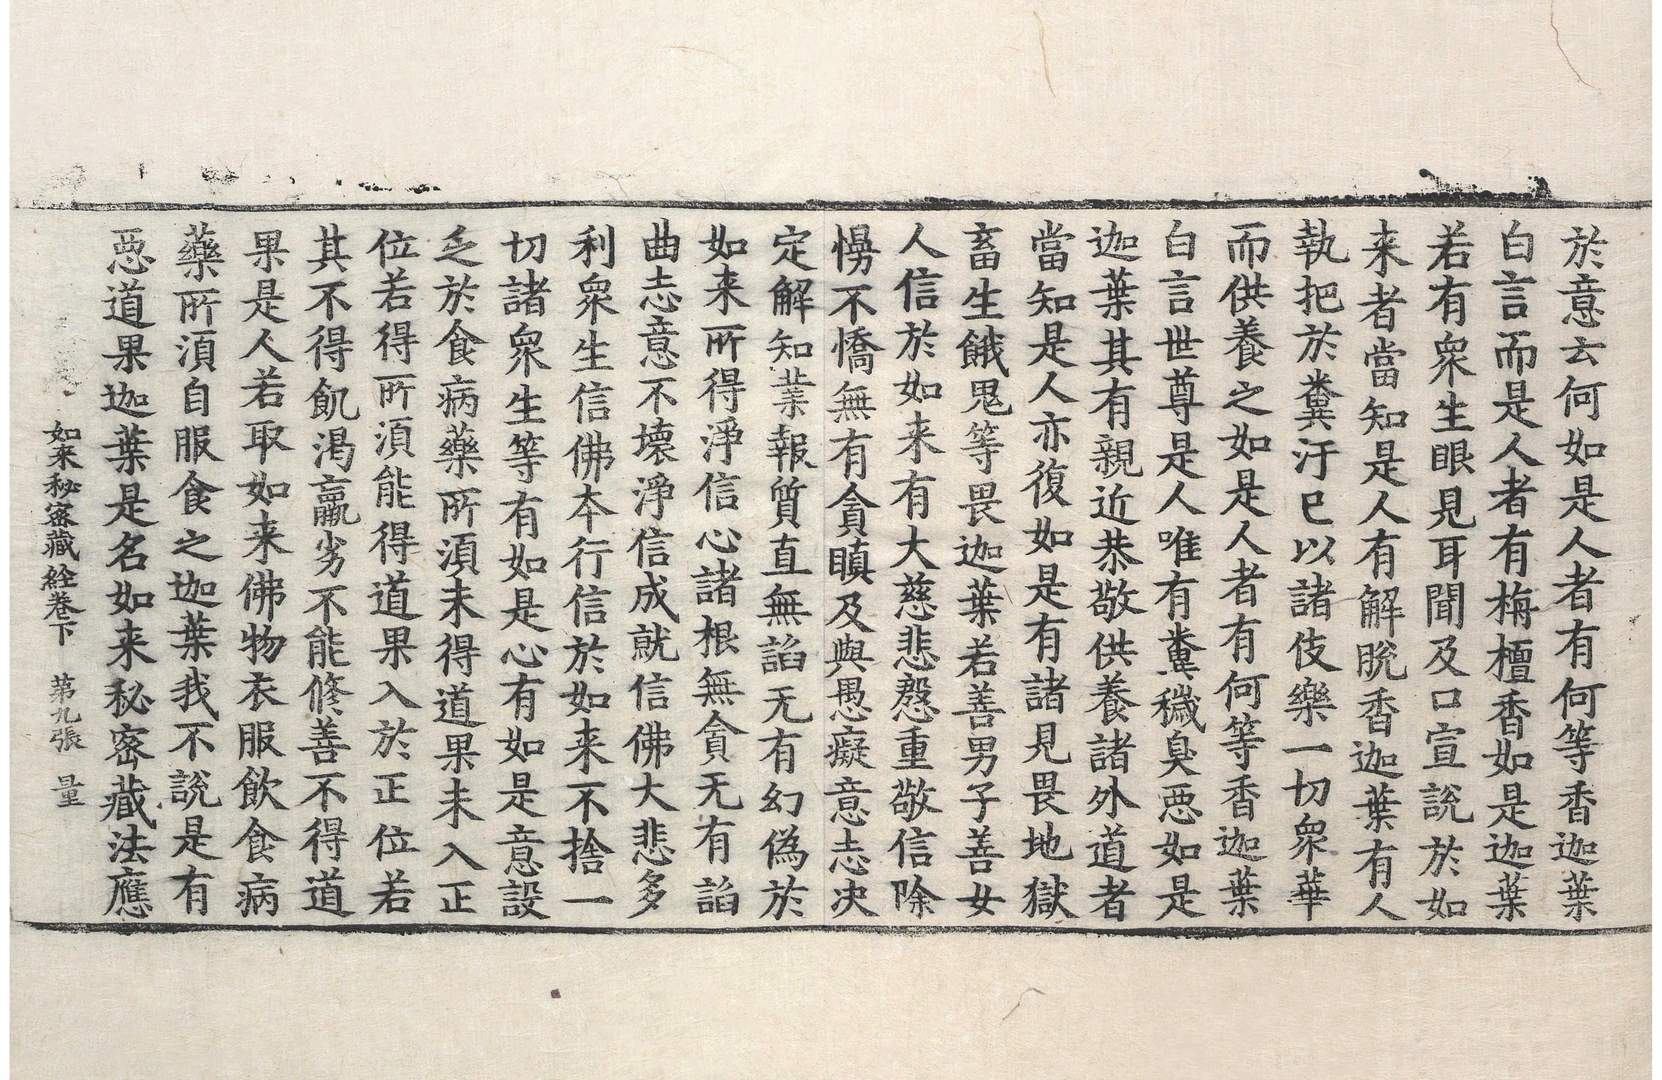 於意云何如是人者有何等香迦葉
白言而是人者有栴檀香如是迦葉
若有衆生眼見耳聞及口宣說於如
来者當知是人有解脫香迦葉有人
執把於糞汙已以諸伎樂一切衆華
而供養之如是人者有何等香迦葉
白言世尊是人唯有糞穢臭惡如是
迦葉其有親近恭敬供養諸外道者
當知是人亦復如是有諸見畏地獄
畜生餓鬼等畏迦葉若善男子善女
人信於如来有大慈悲慇重敬信除
慢不憍無有貪瞋及與愚癡意志决
定解知業報質直無諂无有幻偽於
如来所得淨信心諸根無貪无有諂
曲志意不壊淨信成就信佛大悲多
利衆生信佛本行信於如来不捨一
切諸衆生等有如是心有如是意設
乏於食病藥所湏未得道果未入正
位若得所湏能得道果入於正位若
其不得飢渴羸劣不能修善不得道
果是人若取如来佛物衣服飲食病
藥所湏自服食之迦葉我不說是有
惡道果迦葉是名如来秘密藏法應
如来秘密藏經卷下 第九張 量